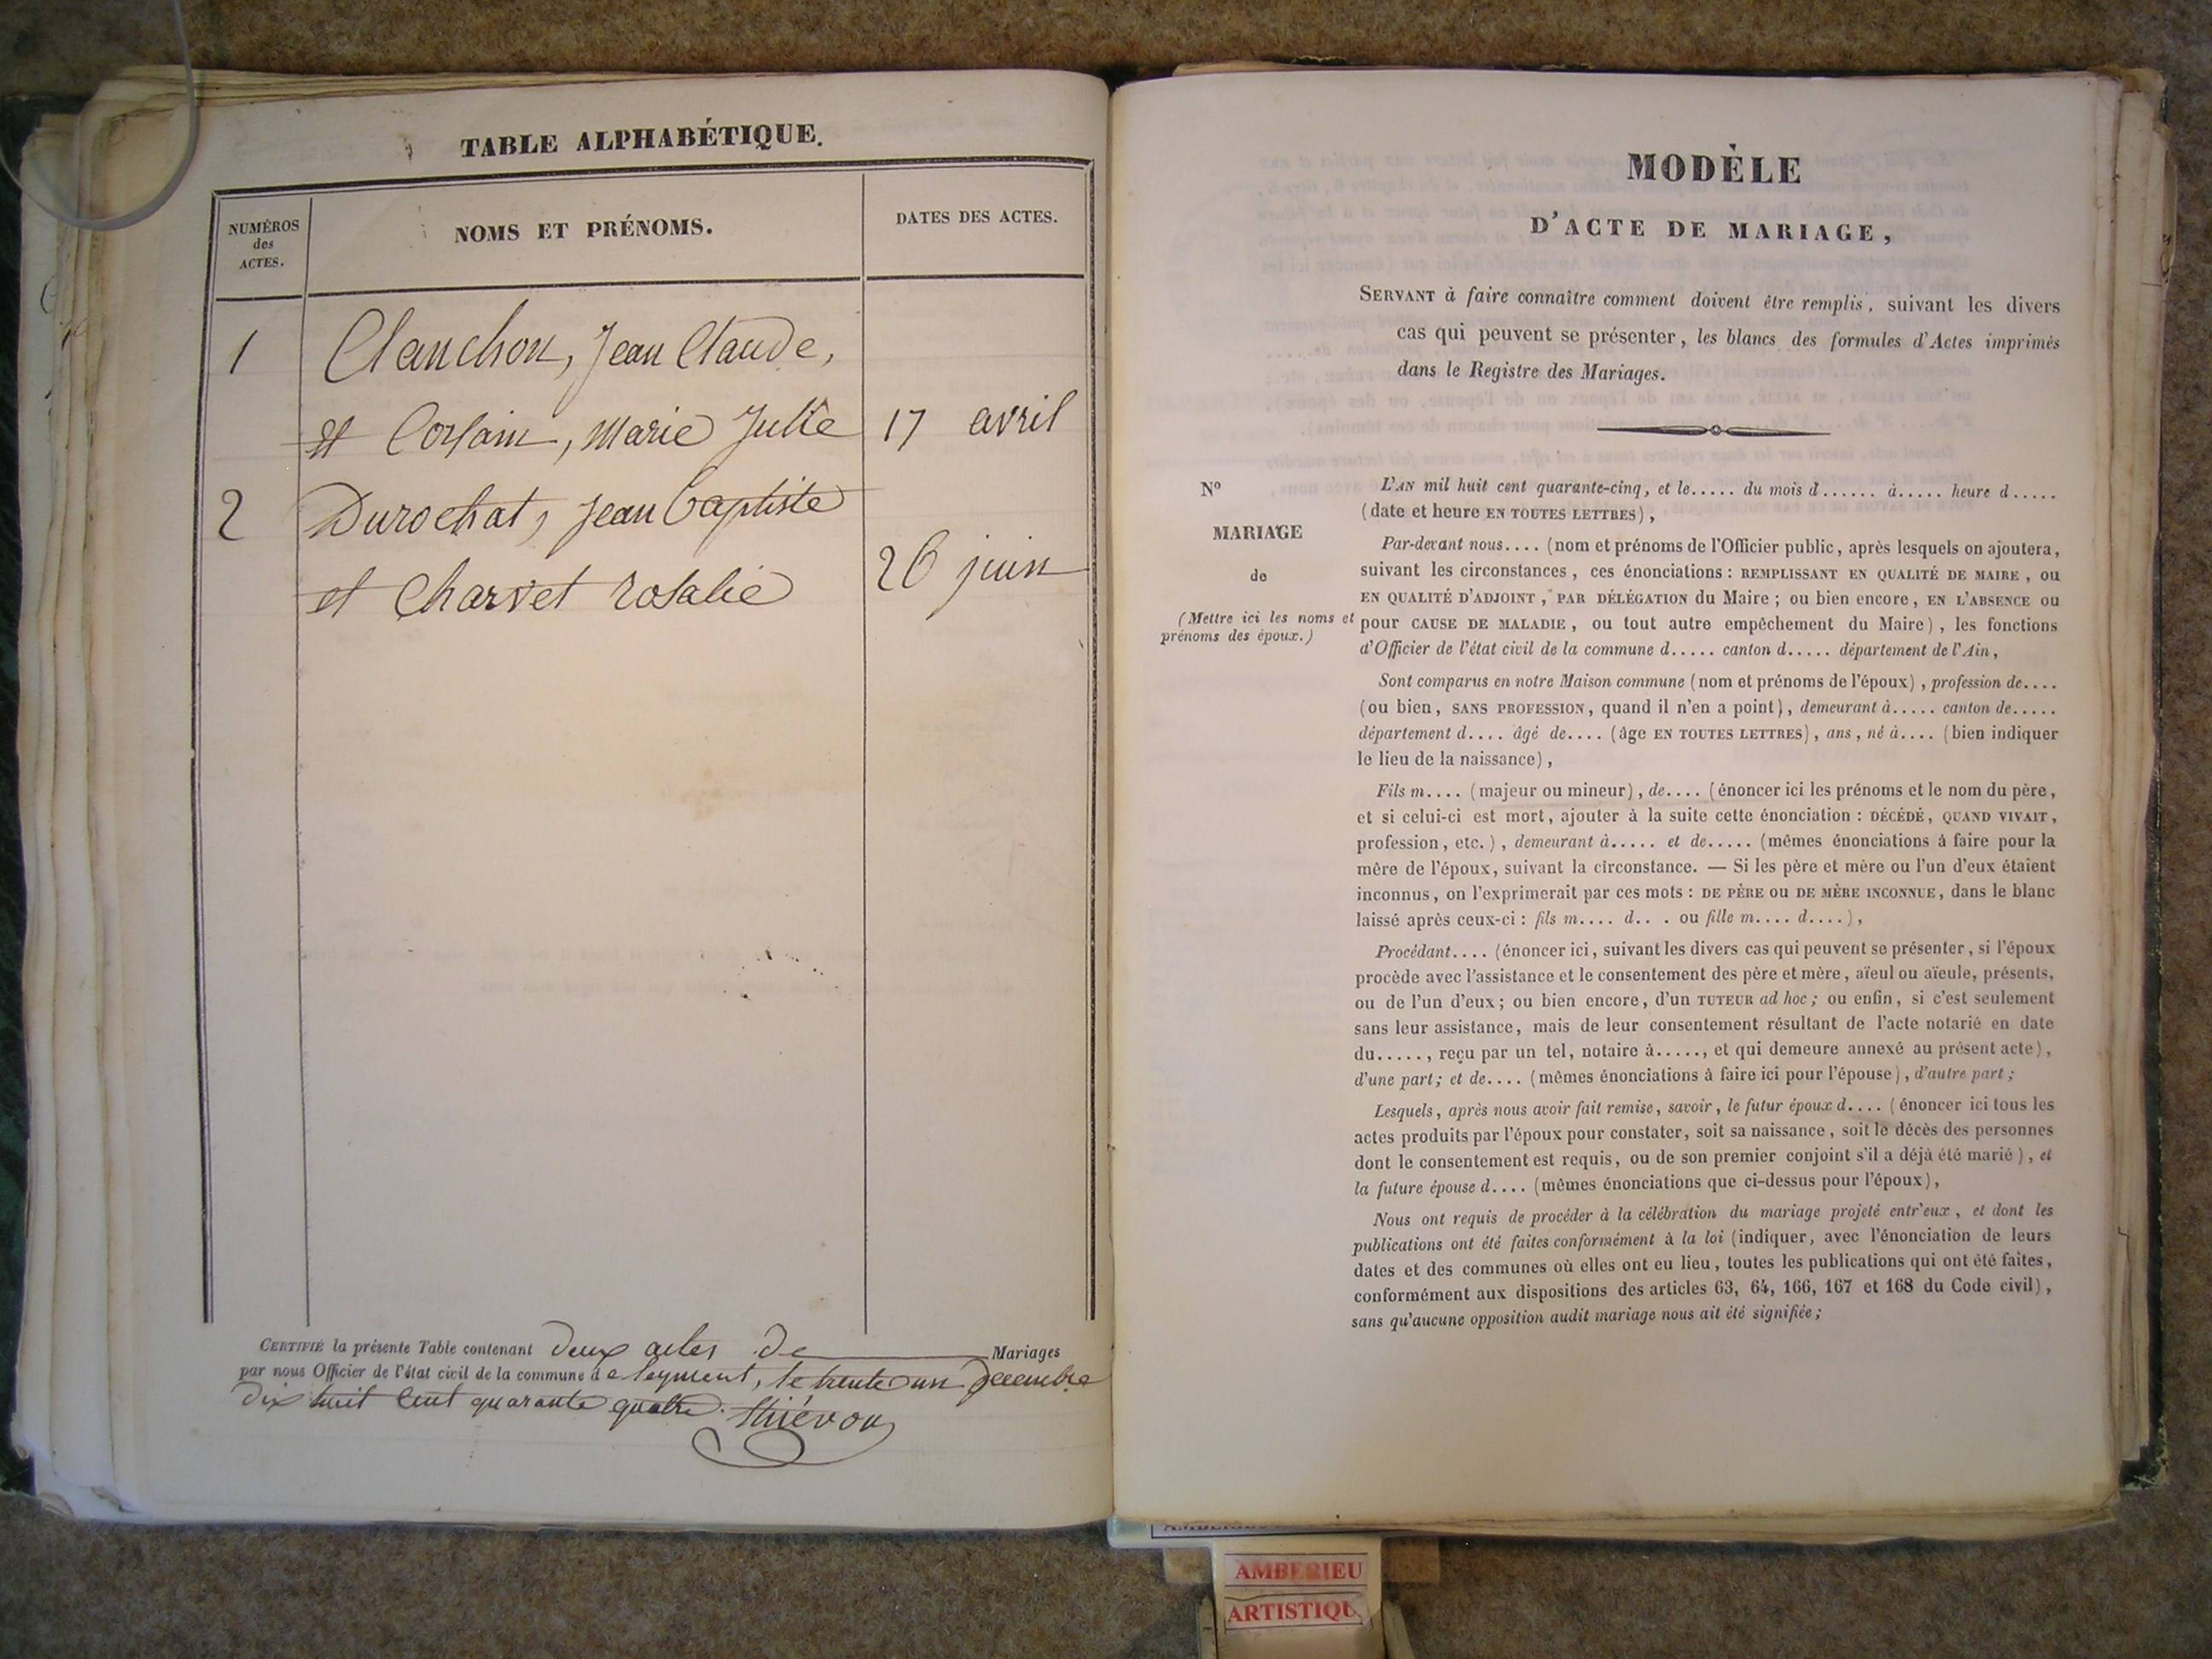 TABLE ALPHABÉTIQUE.
NUMÉROS
des
ACTES.
NOMS ET PRÉNOMS.
DATES DES ACTES.
1
Clanchon, Jean Claude,
et Corsain, Marie Julie
17 avril
2
Durochat, Jean baptiste
et Charvet Rosalie
26 juin
CERTIFIÉ la présente Table contenant Deux actes De Mariages
par nous Officier de l'état civil de la commune de leyment, le trente un Decembre
Dix huit Cent quarante quatre. Thiévon
MODÈLE
D'ACTE DE MARIAGE,
SERVANT à faire connaître comment doivent être remplis, suivant les divers
cas qui peuvent se présenter, les blancs des formules d'Actes imprimés
dans le Registre des Mariages.
N°
MARIAGE
de
(Mettre ici les noms et
prénoms des époux.)
L'AN mil huit cent quarante-cinq, et le..... du mois d...... à..... heure d.....
(date et heure EN TOUTES LETTRES),
Par-devant nous.... (nom et prénoms de l'Officier public, après lesquels on ajoutera,
suivant les circonstances, ces énonciations : REMPLISSANT EN QUALITÉ DE MAIRE, ou
EN QUALITÉ D'ADJOINT, PAR DÉLÉGATION du Maire ; ou bien encore, EN L'ABSENCE ou
pour CAUSE DE MALADIE, ou tout autre empêchement du Maire), les fonctions
d'Officier de l'état civil de la commune d..... canton d..... département de l'Ain,
Sont comparus en notre Maison commune (nom et prénoms de l'époux), profession de....
(ou bien, SANS PROFESSION, quand il n'en a point), demeurant à..... canton de.....
département d.... âgé de.... (âge EN TOUTES LETTRES), ans, né à.... (bien indiquer
le lieu de la naissance),
Fils m.... (majeur ou mineur), de.... (énoncer ici les prénoms et le nom du père,
et si celui-ci est mort, ajouter à la suite cette énonciation : DÉCÉDÉ, QUAND VIVAIT,
profession, etc.), demeurant à..... et de..... (mêmes énonciations à faire pour la
mère de l'époux, suivant la circonstance. — Si les père et mère ou l'un d'eux étaient
inconnus, on l'exprimerait par ces mots : DE PÈRE ou DE MÈRE INCONNUE, dans le blanc
laissé après ceux-ci : fils m.... d.. . ou fille m.... d....),
Procédant.... (énoncer ici, suivant les divers cas qui peuvent se présenter, si l'époux
procède avec l'assistance et le consentement des père et mère, aïeul ou aïeule, présents,
ou de l'un d'eux ; ou bien encore, d'un TUTEUR ad hoc ; ou enfin, si c'est seulement
sans leur assistance, mais de leur consentement résultant de l'acte notarié en date
du....., reçu par un tel, notaire à....., et qui demeure annexé au présent acte),
d'une part ; et de.... (mêmes énonciations à faire ici pour l'épouse), d'autre part ;
Lesquels, après nous avoir fait remise, savoir, le futur époux d.... (énoncer ici tous les
actes produits par l'époux pour constater, soit sa naissance, soit le décès des personnes
dont le consentement est requis, ou de son premier conjoint s'il a déjà été marié), et
la future épouse d.... (mêmes énonciations que ci-dessus pour l'époux),
Nous ont requis de procéder à la célébration du mariage projeté entr'eux, et dont les
publications ont été faites conformément à la loi (indiquer, avec l'énonciation de leurs
dates et des communes où elles ont eu lieu, toutes les publications qui ont été faites,
conformément aux dispositions des articles 63, 64, 166, 167 et 168 du Code civil),
sans qu'aucune opposition audit mariage nous ait été signifiée ;
AMBERIEU
ARTISTIQU